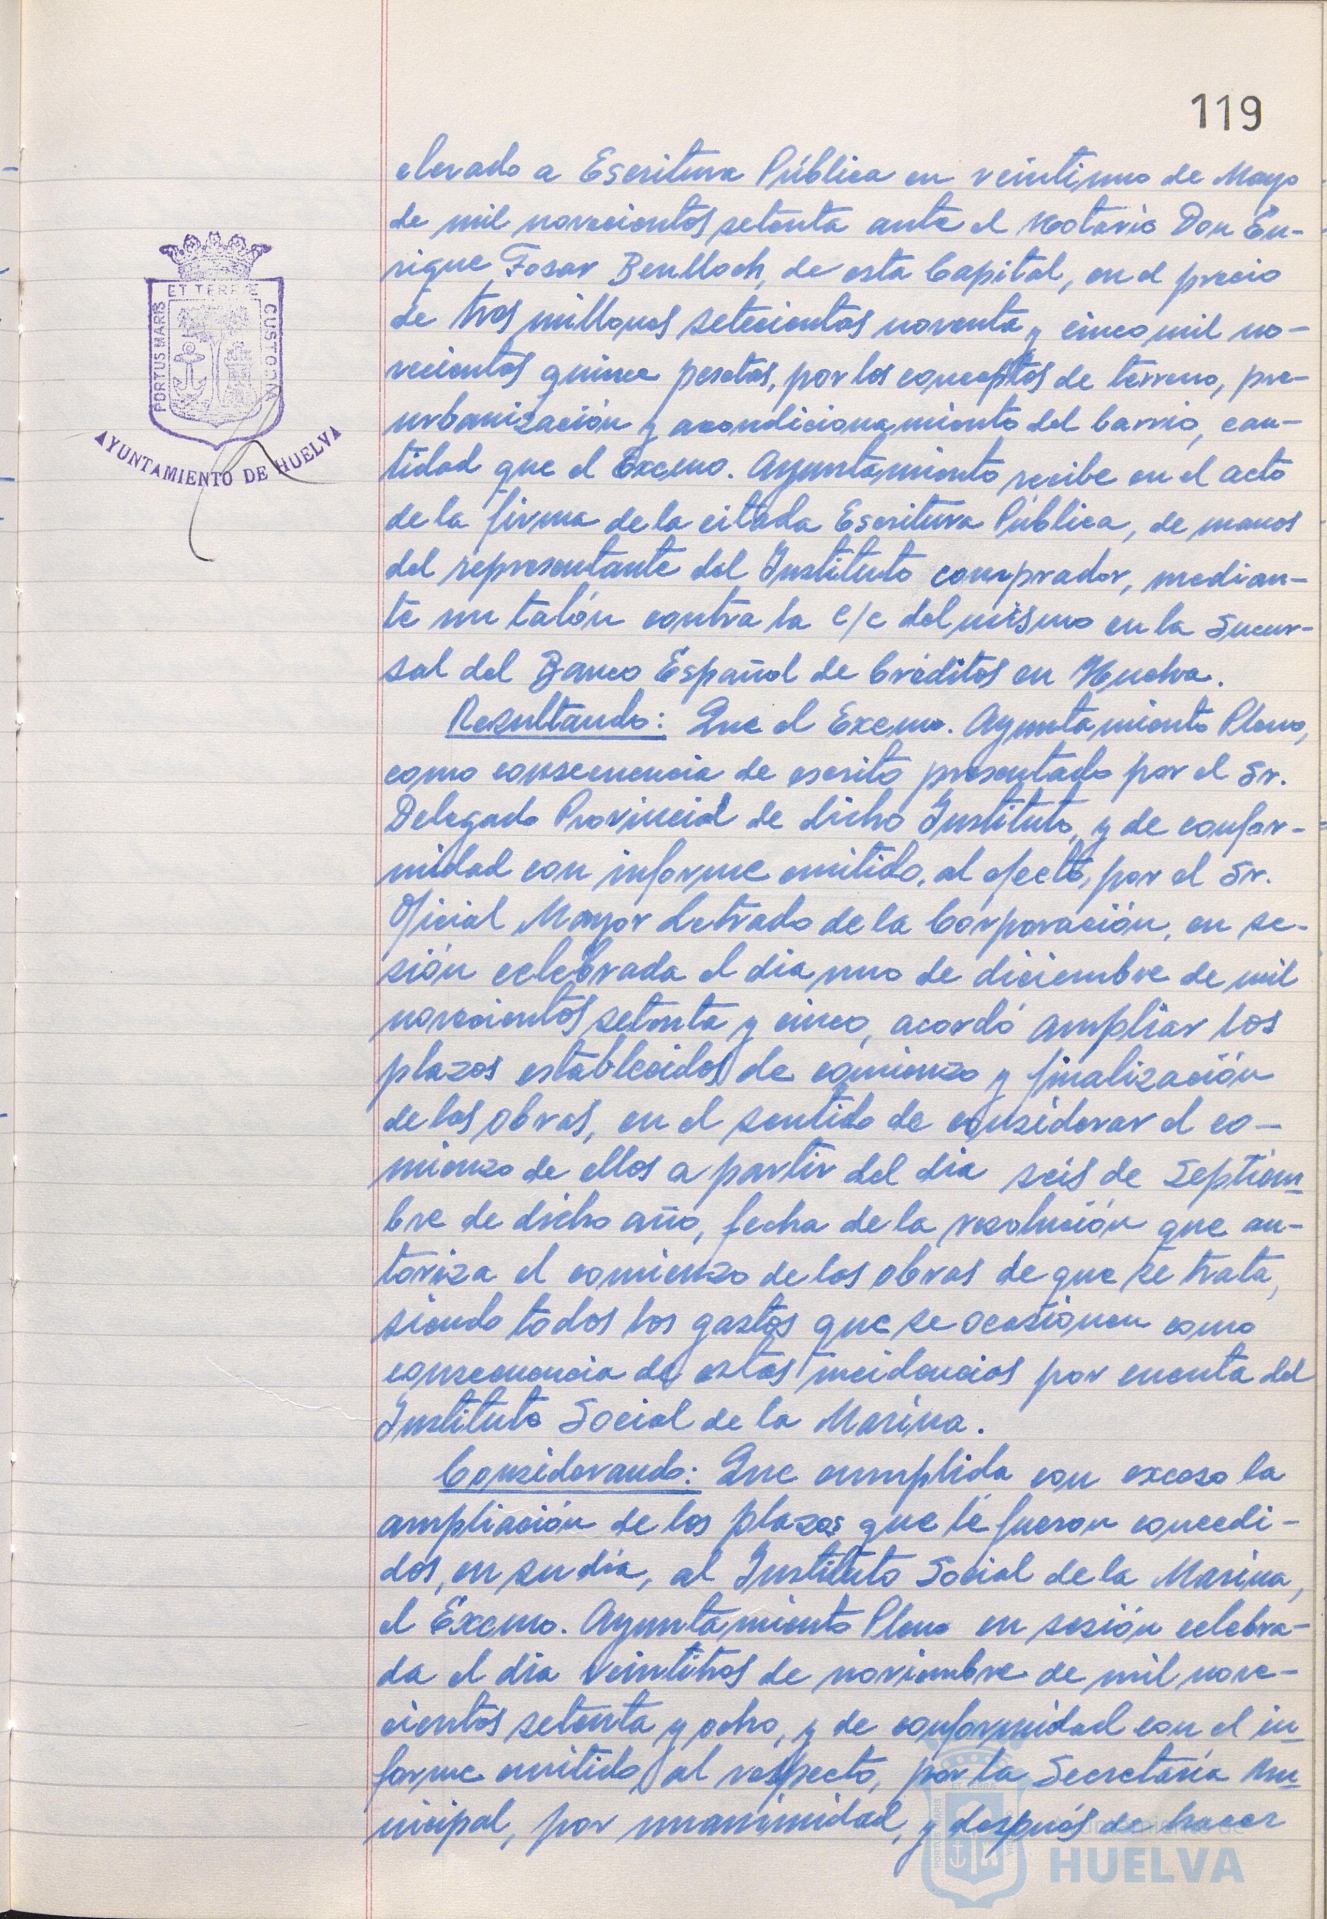 119
elevado a Escritura Pública en veintiuno de Mayo
de mil novecientos setenta ante el Notario Don En-
rique Fosar Benlloch, de esta Capital, en el precio
de tres millones setecientos noventa y cinco mil no-
vecientos quince pesetas, por los conceptos de terreno, pre-
urbanización y acondicionamiento del barrio, can-
tidad que el Excmo. Ayuntamiento recibe en el acto
de la firma de la citada Escritura Pública, de manos
del representante del Instituto comprador, median-
te un talón contra la c/c del mismo en la Sucur-
sal del Banco Español de Créditos en Huelva.
Resultando: Que el Excmo. Ayuntamiento Pleno,
como consecuencia de escrito presentado por el Sr.
Delegado Provincial de dicho Instituto, y de confor-
midad con informe emitido, al efecto, por el Sr.
Oficial Mayor Letrado de la Corporación, en se-
sión celebrada el dia uno de diciembre de mil
novecientos setenta y cinco, acordó ampliar los
plazos establecidos de comienzo y finalización
de las obras, en el sentido de considerar el co-
mienzo de ellos a partir del dia seis de Septiem-
bre de dicho año, fecha de la resolución que au-
toriza el comienzo de las obras de que se trata,
siendo todos los gastos que se ocasionen como
consecuencia de estas incidencias por cuenta del
Instituto Social de la Marina.
Considerando: Que cumplida con exceso la
ampliación de los plazos que le fueron concedi-
dos, en su dia, al Instituto Social de la Marina,
el Excmo. Ayuntamiento Pleno en sesión celebra-
da el dia veintitres de noviembre de mil nove-
cientos setenta y ocho, y de conformidad con el in-
forme emitido, al respecto, por la Secretaría Mu-
nicipal, por unanimidad, y después de hacer
PORTUS MARIS
ET TERRE
CUSTODIA
AYUNTAMIENTO DE HUELVA
Ayuntamiento de
HUELVA